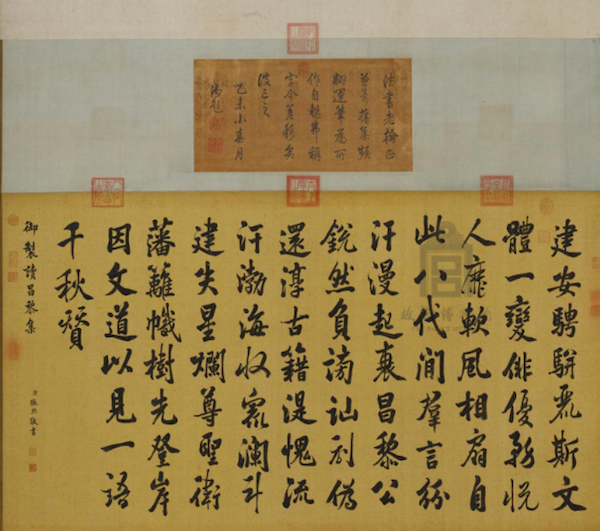 法書老翰臣
舊集
運筆為可
作自弗稱
今矣
彼己之
乙未小春月
御題
建安騁駢麗斯文
體一變俳優務悅
人靡軟風相扇自
此八代間羣言紛
汗漫起衰昌黎公
銳然負謗訕剗偽
還淳古籍湜愧流
汗渤海收瀾斗
建失星爛尊聖衛
藩籬幟樹先登岸
因文道以見一語
千秋贊
御製讀昌黎集
臣張照敬書